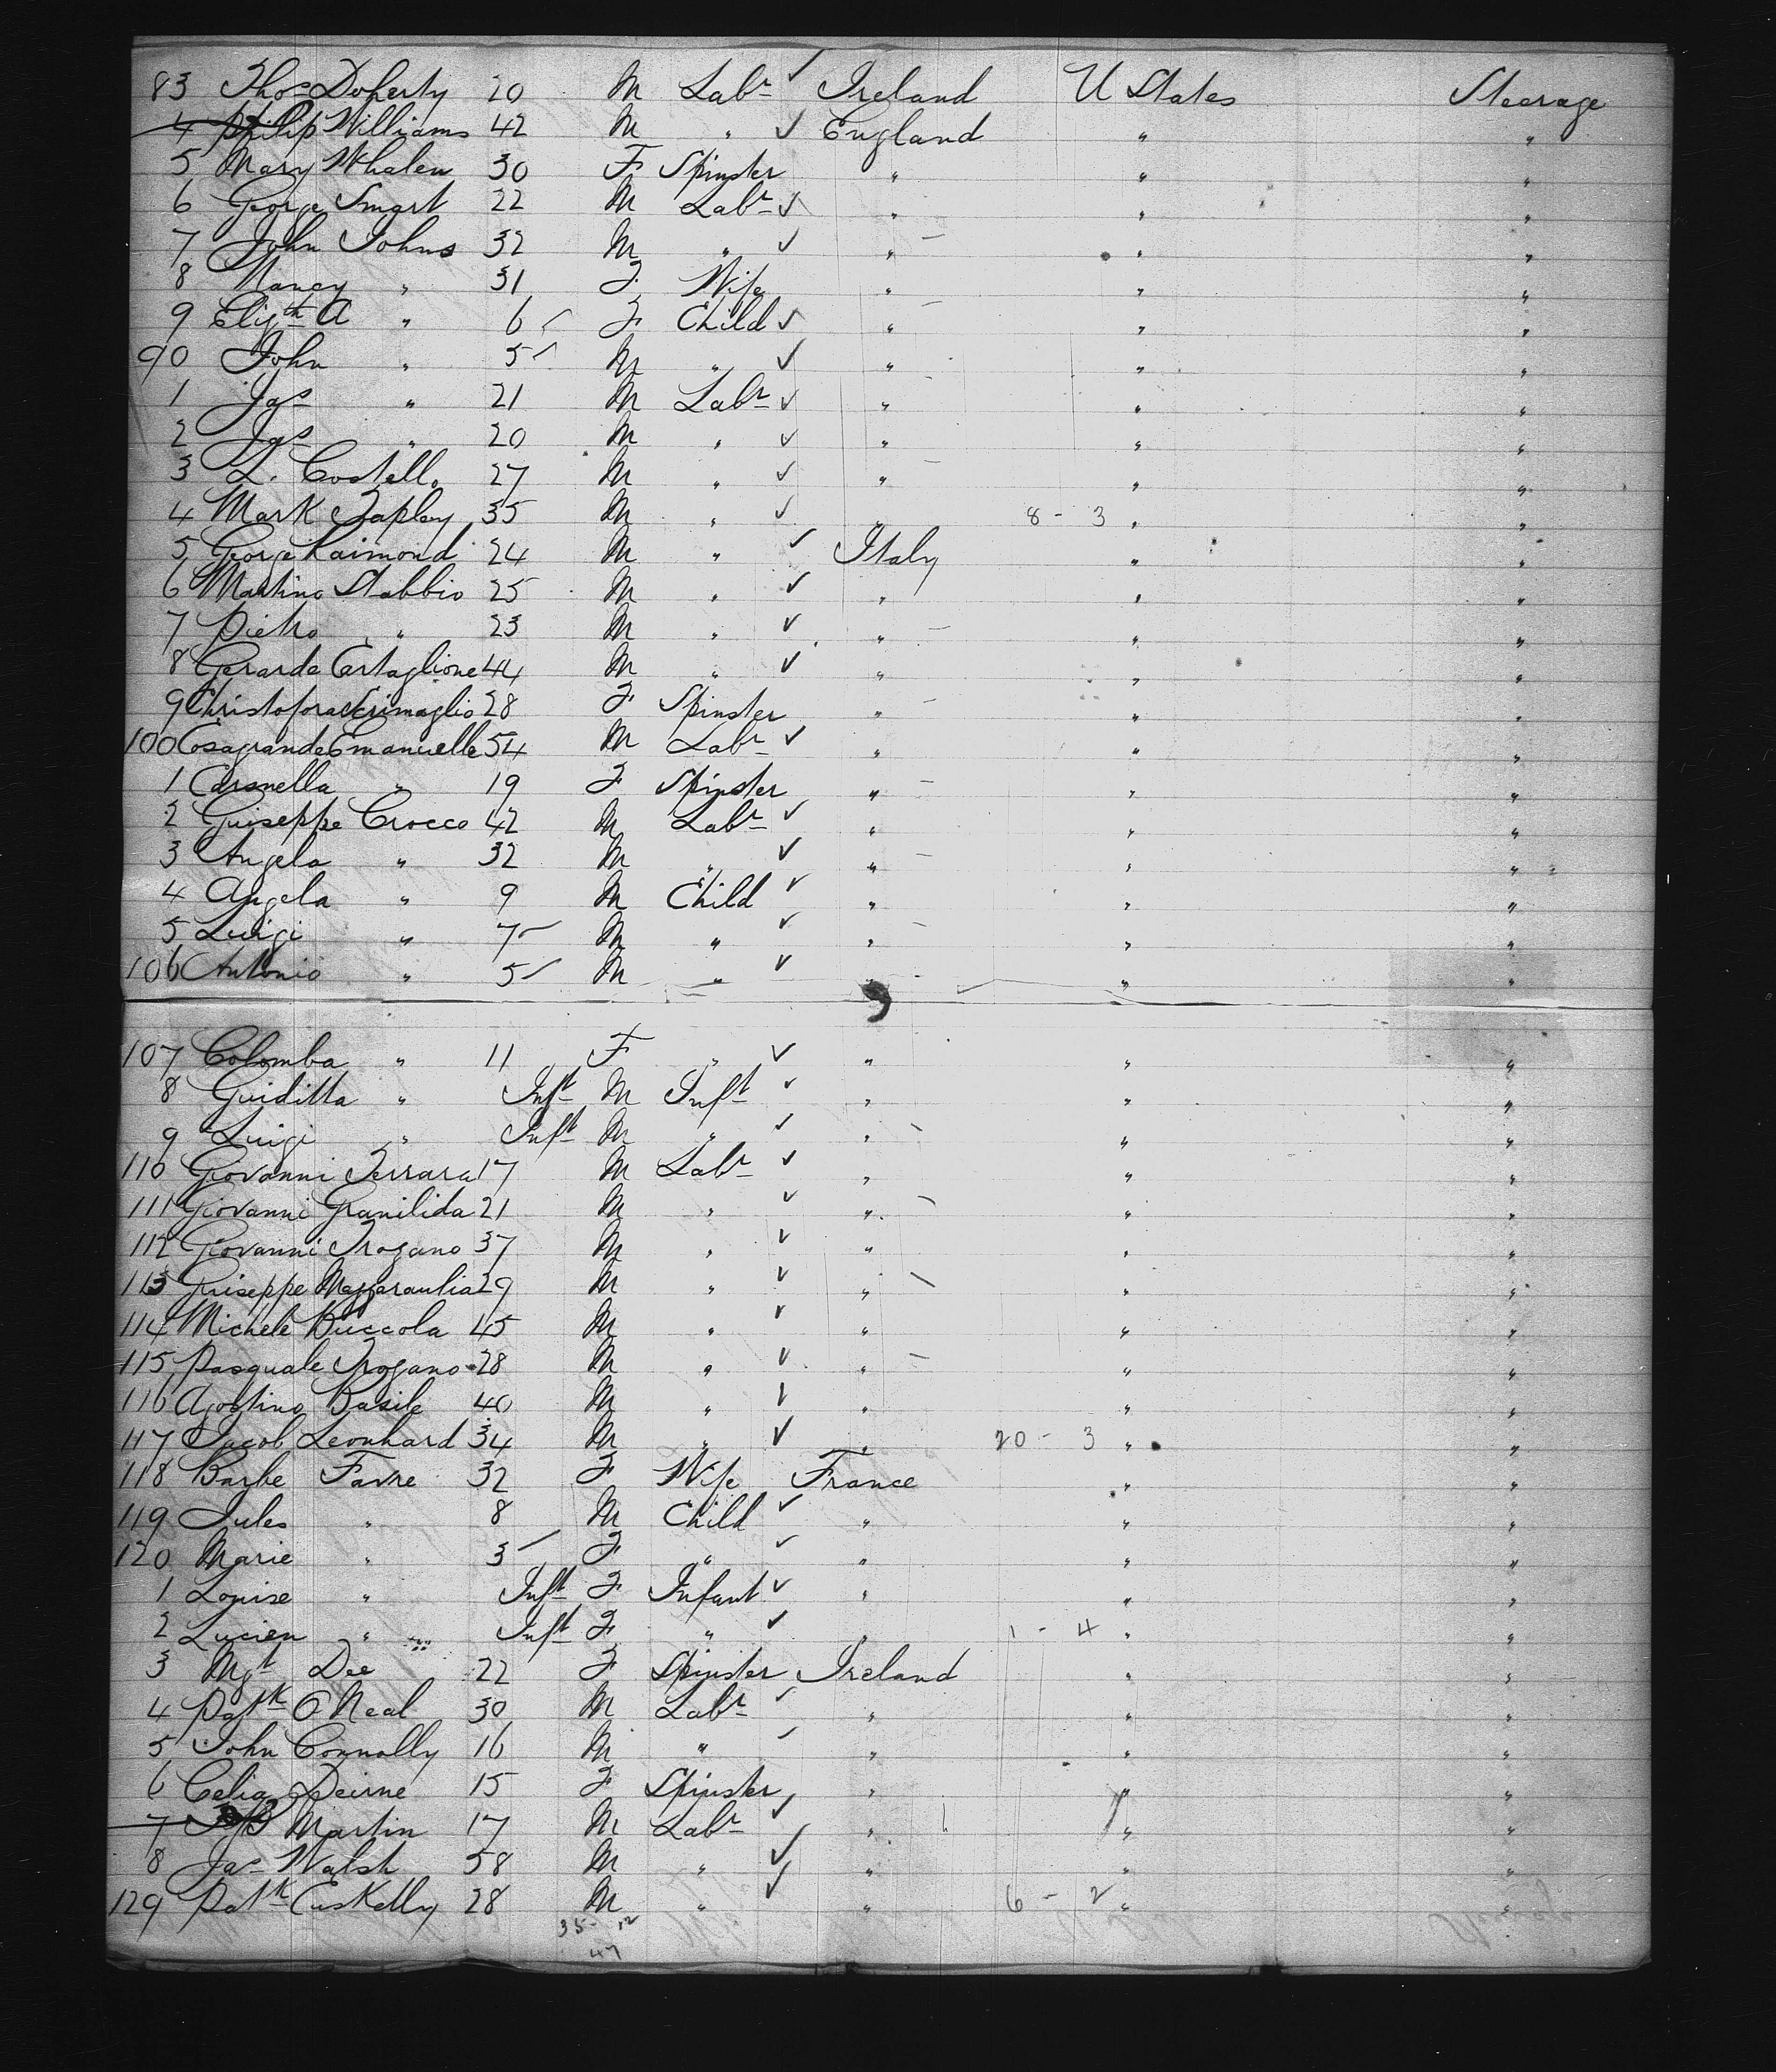 83 Thos Doherty 20 M Labr ✓ Ireland U States Steerage
4 Philip Williams 42 M " ✓ England " "
5 Mary Whalen 30 F Spinster " " "
6 George Smart 22 M Labr ✓ " " "
7 John Johns 32 M " ✓ " " "
8 Nancy " 31 F Wife " " "
9 Elizth A " 6 ✓ F Child ✓ " " "
90 John " 5 ✓ M " ✓ " " "
1 Jas " 21 M Labr ✓ " " "
2 Jas " 20 M " ✓ " " "
3 L. Costello 27 M " ✓ " " "
4 Mark Tapley 35 M " ✓ " 8 - 3 " "
5 George Raimond 24 M " ✓ Italy " "
6 Martino Stabbio 25 M " ✓ " " "
7 Pietro " 23 M " ✓ " " "
8 Gerarda Cartaglione 44 M " ✓ " " "
9 Christofora 28 F Spinster " " "
100 Cosagrande Emanuelle 54 M Labr ✓ " " "
1 Carmella " 19 F Spinster " " "
2 Guiseppe Crocco 42 M Labr ✓ " " "
3 Angela " 32 M " ✓ " " "
4 Angela " 9 M Child ✓ " " "
5 Luigi " 7 M " ✓ " " "
106 Antonio " 5 ✓ M " ✓ " " "
107 Colomba " 11 F " ✓ " " "
8 Guiditta " Inft M Inft ✓ " " "
9 Luigi " Inft M " ✓ " " "
110 Giovanni Ferrara 17 M Labr ✓ " " "
111 Giovanni Granilida 21 M " ✓ " " "
112 Giovanni Trogano 37 M " ✓ " " "
113 Guiseppe 29 M " ✓ " " "
114 Michele Buccola 45 M " ✓ " " "
115 Pasquale Trogano 28 M " ✓ " " "
116 Agostino Basile 40 M " ✓ " " "
117 Jacob Leonhard 34 M " ✓ " 20 - 3 " "
118 Barbe Favre 32 F Wife France " "
119 Jules " 8 M Child ✓ " " "
120 Marie " 3 ✓ F " ✓ " " "
1 Louise " Inft F Infant ✓ " " "
2 Lucien " Inft F " ✓ " 1 - 4 " "
3 Mgt Dee 22 F Spinster Ireland " "
4 Patk O Neal 30 M Labr ✓ " " "
5 John Connolly 16 M " ✓ " " "
6 Celia Deirne 15 F Spinster " " "
7 Martin 17 M Labr ✓ " " "
8 Jas Walsh 58 M " ✓ " " "
129 Patk CusKelly 28 M " ✓ " 6 - 2 " "
35 - 12
47